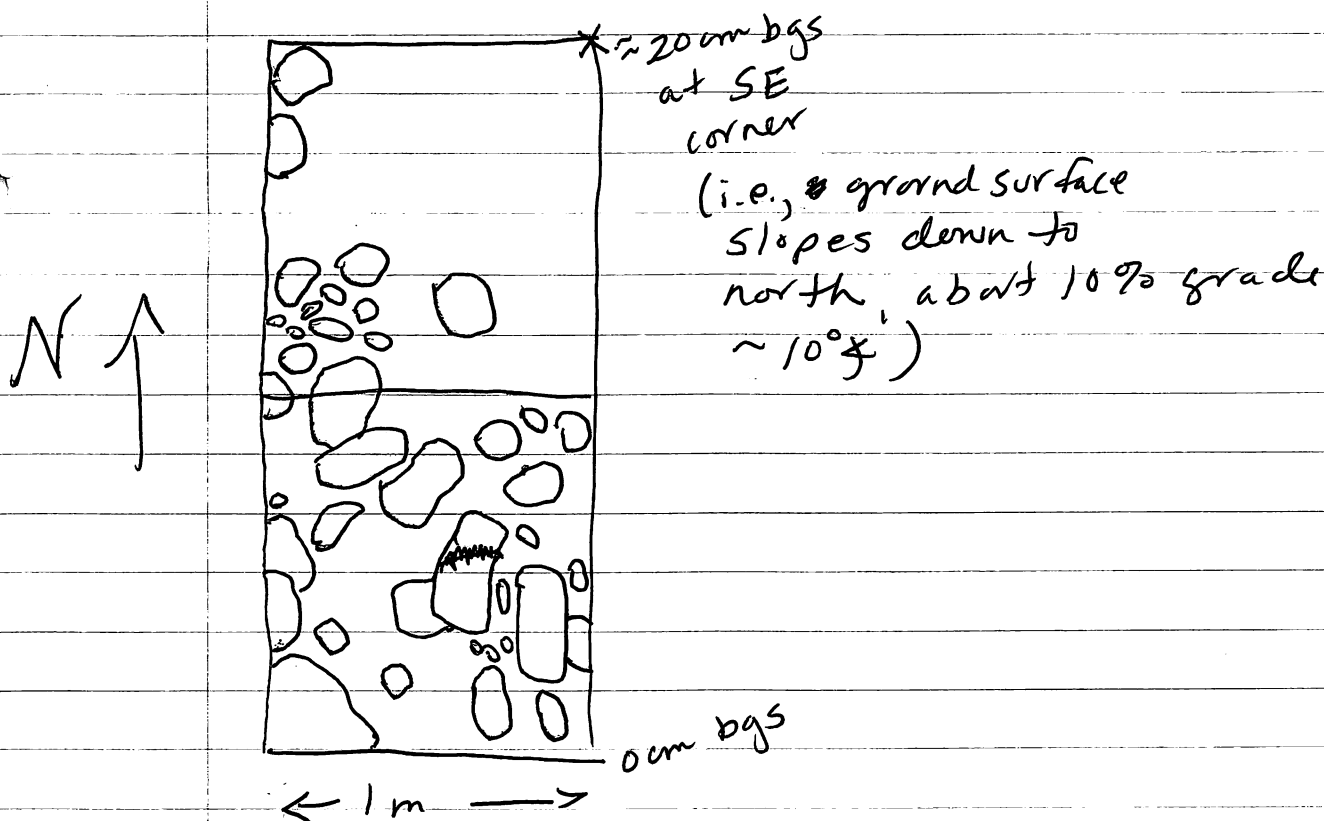 ~20cm bgs
at SE
corner
(i.e., ground surface
slopes down to
north, about 10% grade
~10°∡)
N
0cm bgs
← 1 m →